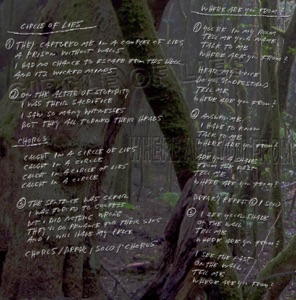 CIRCLE OF LIES
① THEY CAPTURED ME IN A COMPLEX OF LIES
A PRISON WITHOUT WALLS
I HAD NO CHANCE TO ESCAPE FROM THIS HELL
AND ITS WICKED MINDS
② ON THE ALTAR OF STUPIDITY
I WAS THEIR SACRIFICE
I SAW SO MANY WITNESSES
BUT THEY ALL TURNED THEIR HEADS
CHORUS
CAUGHT IN A CIRCLE OF LIES
CAUGHT IN A CIRCLE
CAUGHT IN A CIRCLE OF LIES
CAUGHT IN A CIRCLE
③ THE SENTENCE WAS CLEAR
I WAS FORCED TO
BUT I DID NOTHING WRONG
THEY'LL DO PENANCE FOR THEIR SINS
AND I WILL HAVE MY PRICE
CHORUS / BREAK / SOLO / CHORUS
WHERE ARE YOU FROM?
① YOU'RE IN MY ROOM
TELL ME YOUR NAME
TALK TO ME
WHERE ARE YOU FROM?
HEAR MY VOICE
DO YOU UNDERSTAND
TELL ME
WHERE ARE YOU FROM?
② ANSWER ME
I HAVE TO KNOW
TALK TO ME
WHERE ARE YOU FROM?
ARE YOU A
FROM THE PAST
TELL ME
WHERE ARE YOU FROM?
BREAK / REPEAT ① / SOLO
② I SEE YOUR SHADE
ON THE WALL
TELL ME
WHERE ARE YOU FROM
I SEE THE
ON THE WALL
TELL ME
WHERE ARE YOU FROM